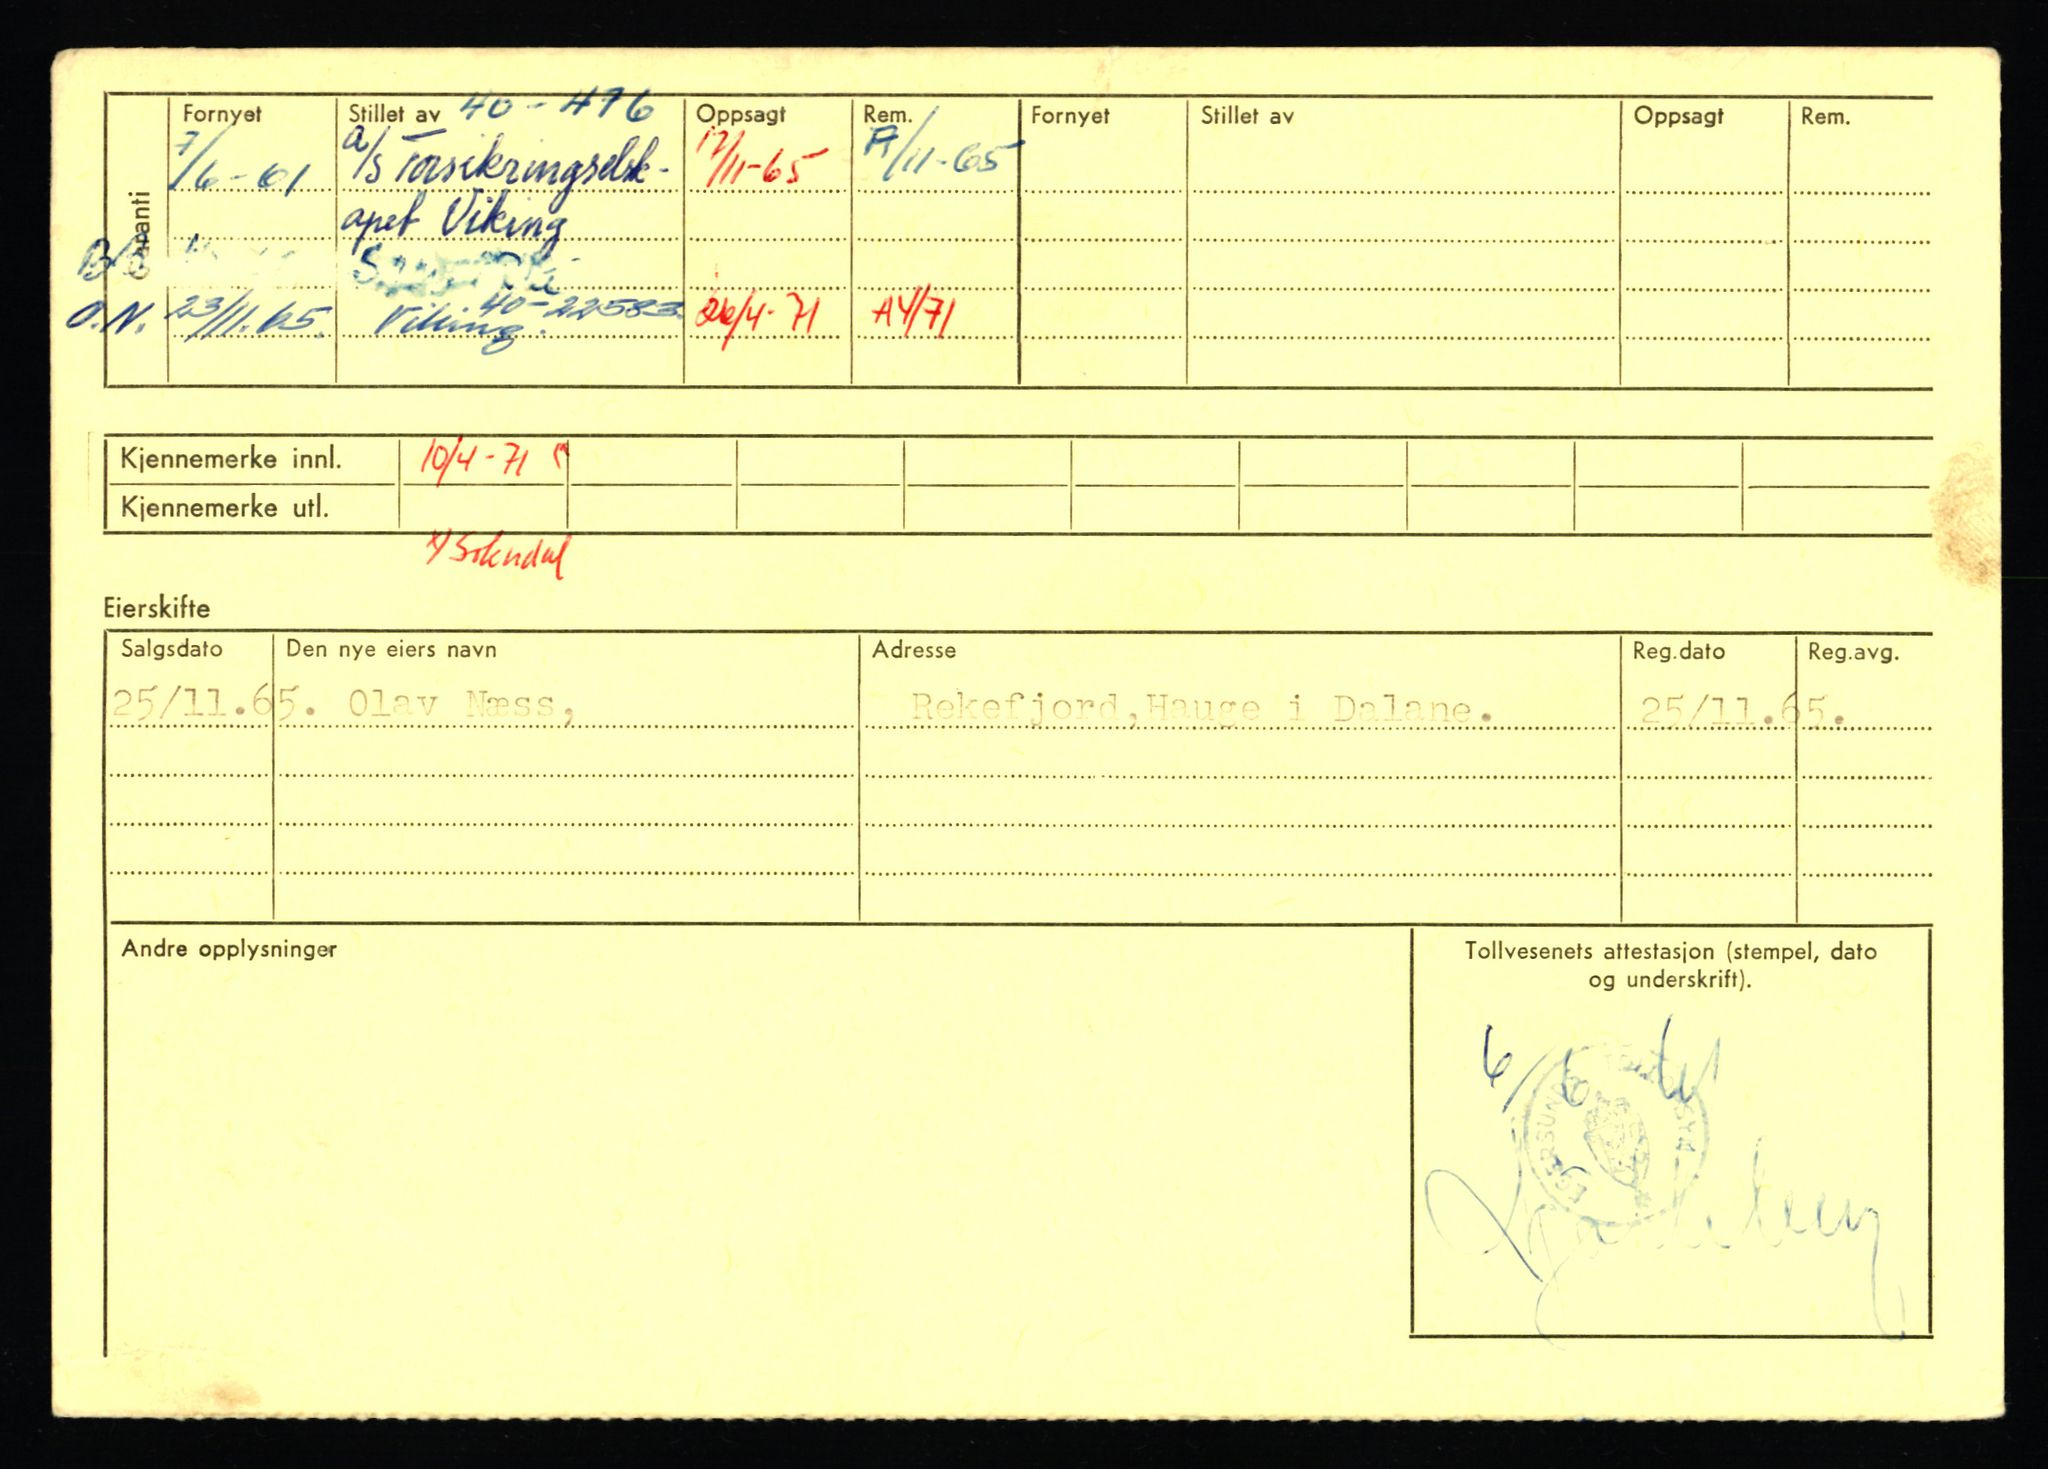 Garanti
Fornyet Stillet av 40-476 Oppsagt Rem. Fornyet Stillet av Oppsagt Rem.
7/6-61 a/s Forsikringselsk- 17/11-65 A/11-65
apet Viking
O.N. 23/11.65. Viking. 40-22583. 26/4-71 A4/71
Kjennemerke innl. 10/4-71
Kjennemerke utl.
x/ Sokndal
Eierskifte
Salgsdato Den nye eiers navn Adresse Reg.dato Reg.avg.
25/11.65. Olav Næss, Rekefjord,Hauge i Dalane. 25/11.65.
Andre opplysninger
Tollvesenets attestasjon (stempel, dato
og underskrift).
6/6 61
EGERSUND